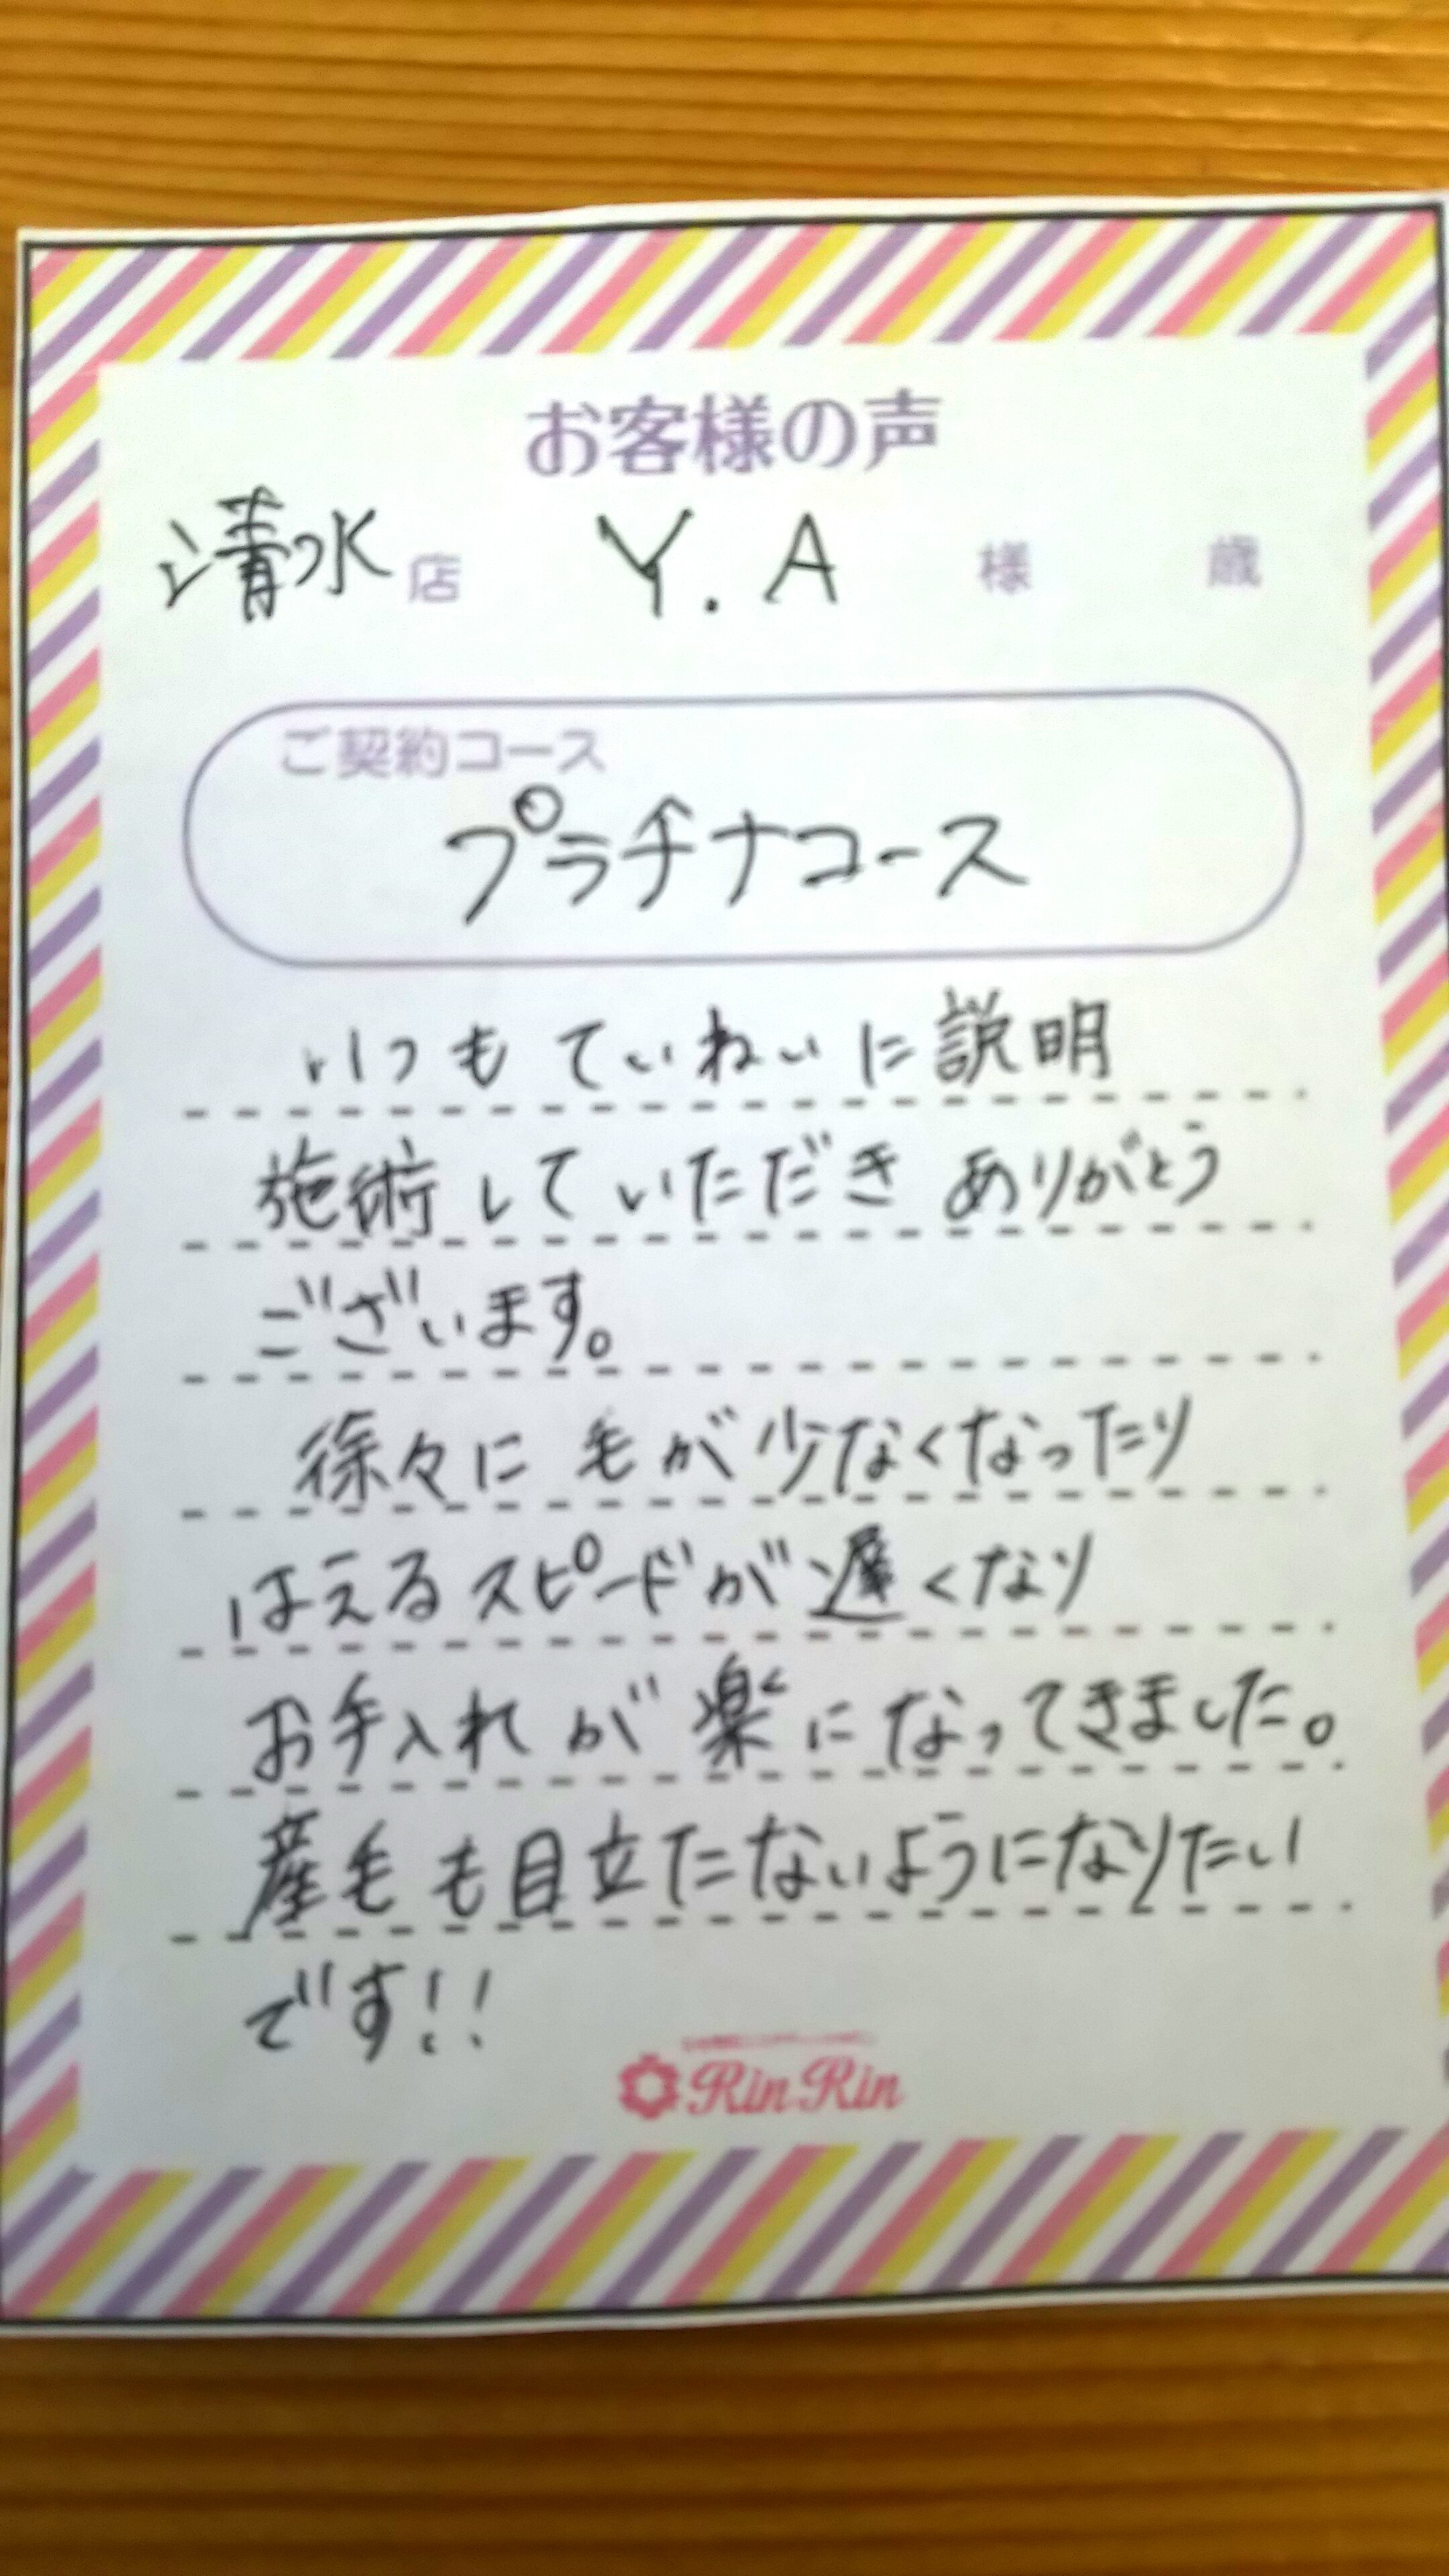 お客様の声
清水店 Y.A 様 歳
ご契約コース
プラチナコース
いつもていねいに説明
施術していただきありがとう
ございます。
徐々に毛が少なくなったり
はえるスピードが遅くなり
お手入れが楽になってきました。
産毛も目立たないようになりたい
です!!
RinRin